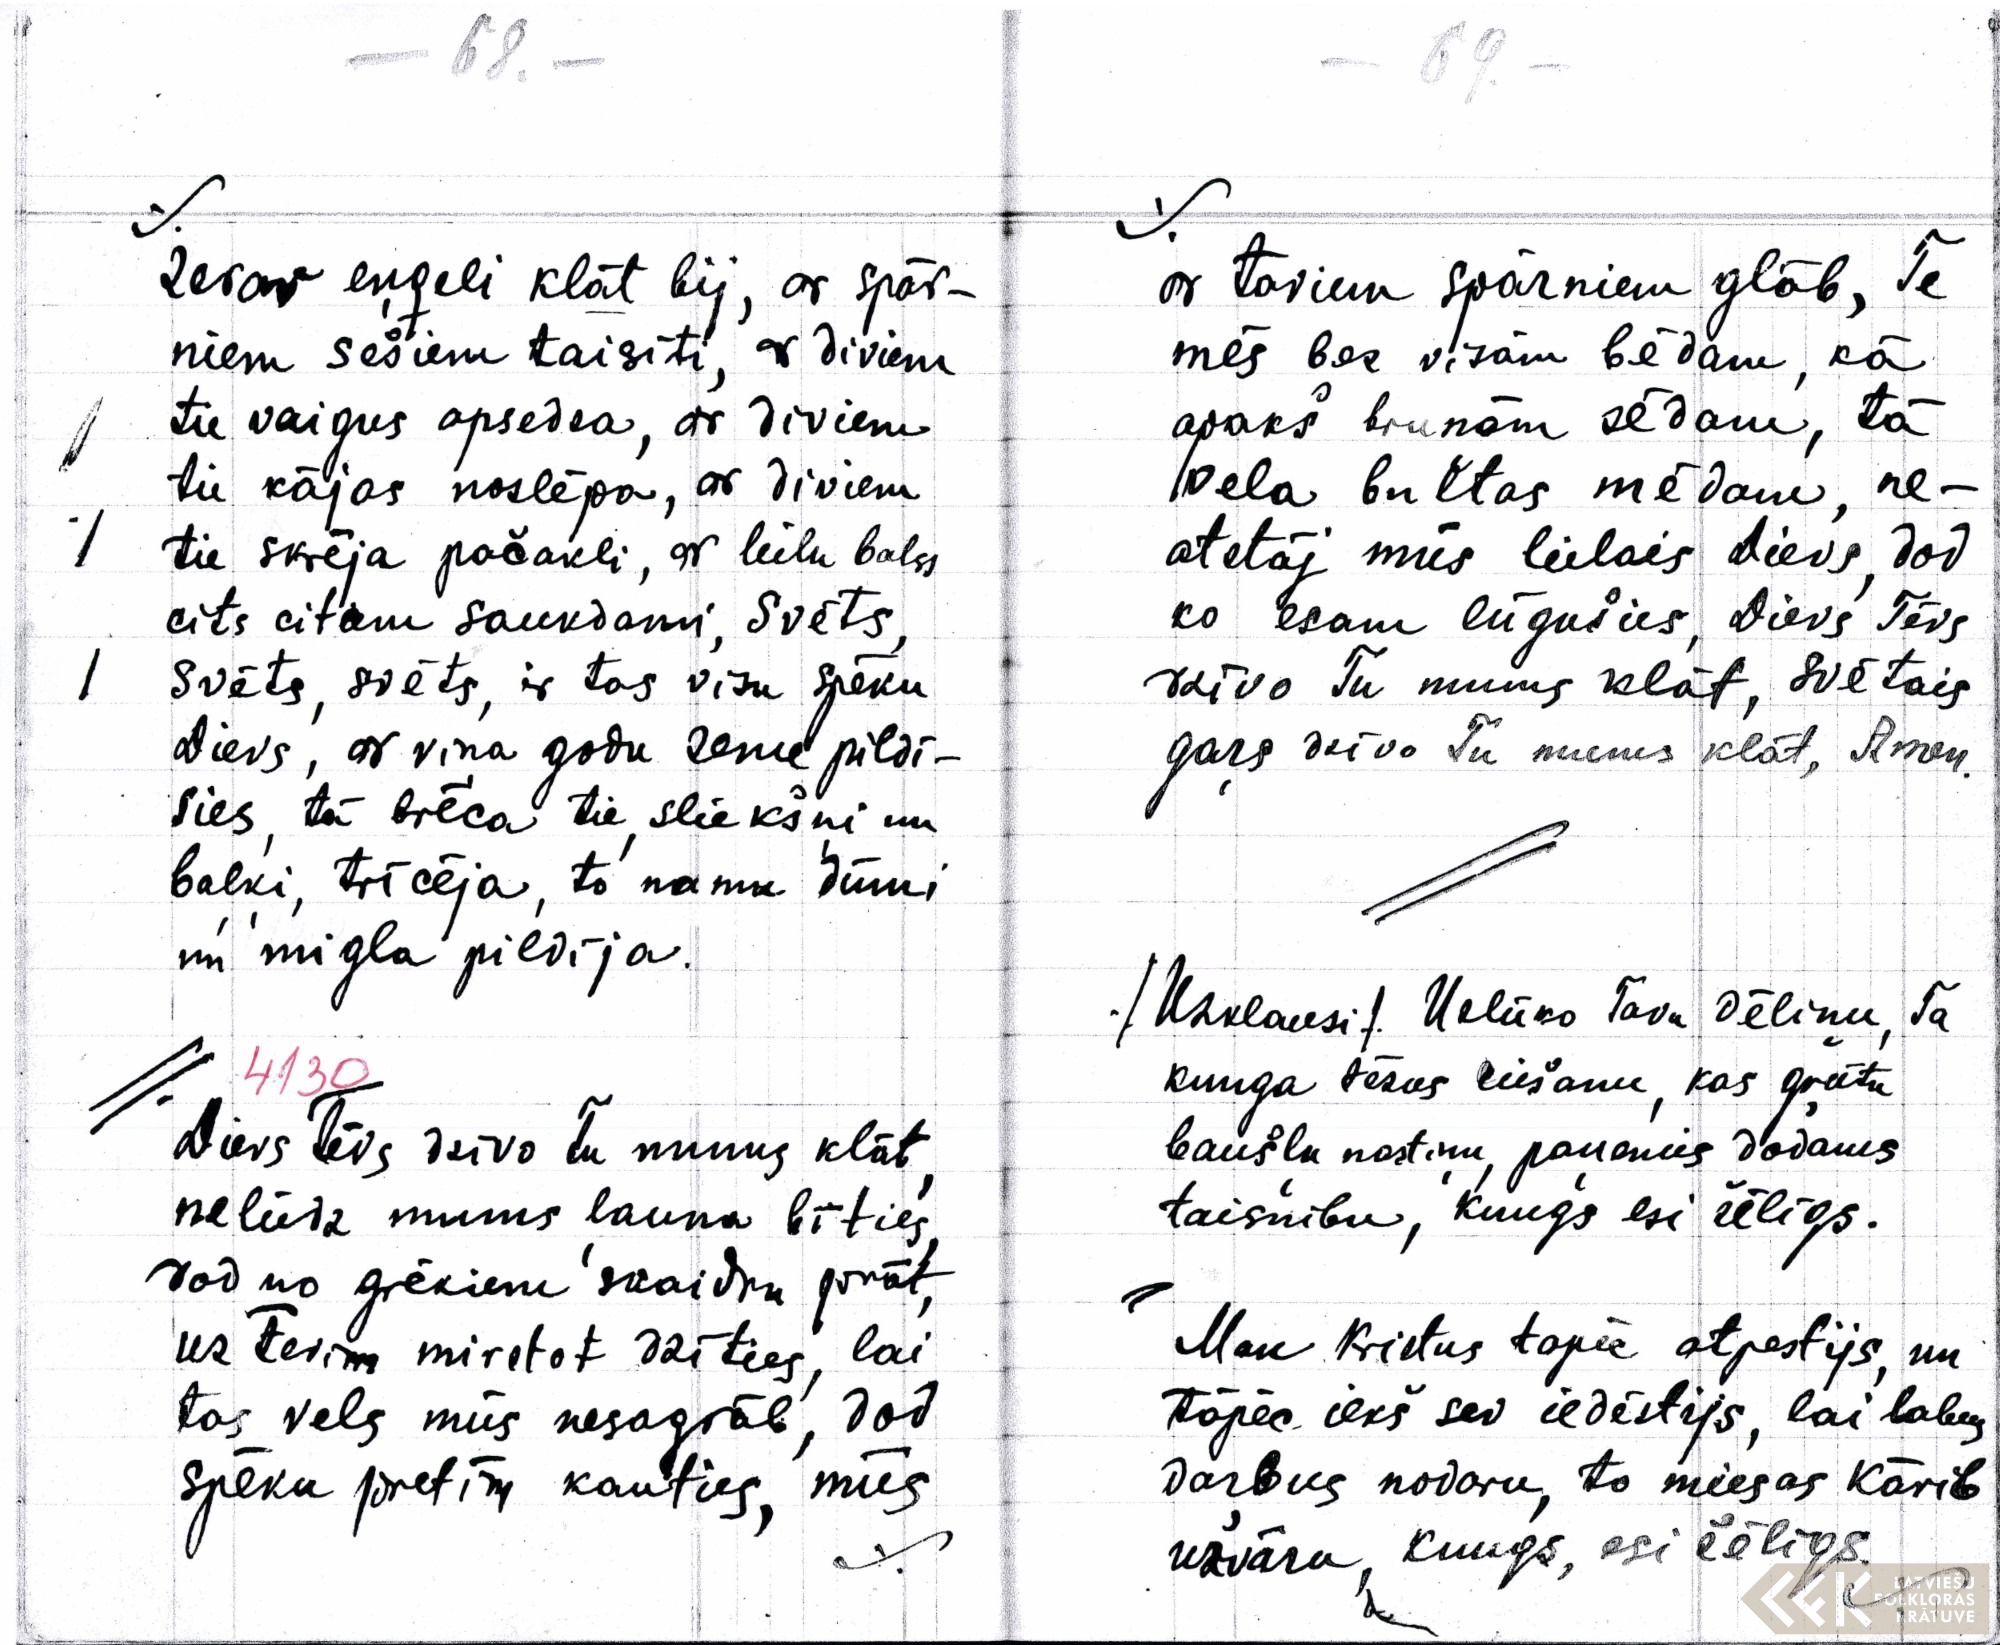 — 68. —
./.
Zerav eņģeli klāt bij, ar spār-
niem sešiem taisīti, ar diviem
tie vaigus apsedza, ar diviem
tie kājas noslēpa, ar diviem
tie skrēja pačakli, ar lielu balss
cits citam saukdami, Svēts,
Svēts, svēts, ir tas visu spēku
Dievs, ar viņa godu zeme pildī-
sies, tā brēca tie, sliekšņi un
baļķi, trīcēja, to namu dūmi
un migla pildīja.
4130
Dievs Tēvs dzīvo Tu mums klāt,
neliedz mums ļauna bīties,
dod no grēkiem skaidru prāt,
uz Tevim mirstot dzīties, lai
tas vels mūs nesagrāb, dod
spēku pretīm kauties, mūs
./.
— 69. —
./.
ar taviem spārniem glāb, Te
mēs bez visām bēdam, kā
apakš bruņām sēdam, tā
Vela bultas mēdam, ne-
atstāj mūs lielais Dievs, dod
ko esam lūgušies, Dievs Tēvs
dzīvo Tu mums klāt, svētais
gars dzīvo Tu mums klāt, Amen.
./Uzklausi/. Uzlūko Tavu Dēliņu, Ta
kunga Jēzus ciešanu, kas grūtu
baušļu nastiņu, paņemies dodams
taisnību, Kungs esi žēlīgs.
Man Kristus tapēc atpestījs, un
tāpēc iekš sev iedēstijs, lai labus
darbus nodaru, to miesas Kārib
uzvāru, Kungs, esi žēlīgs.
./.
LATVIEŠU
FOLKLORAS
KRĀTUVE